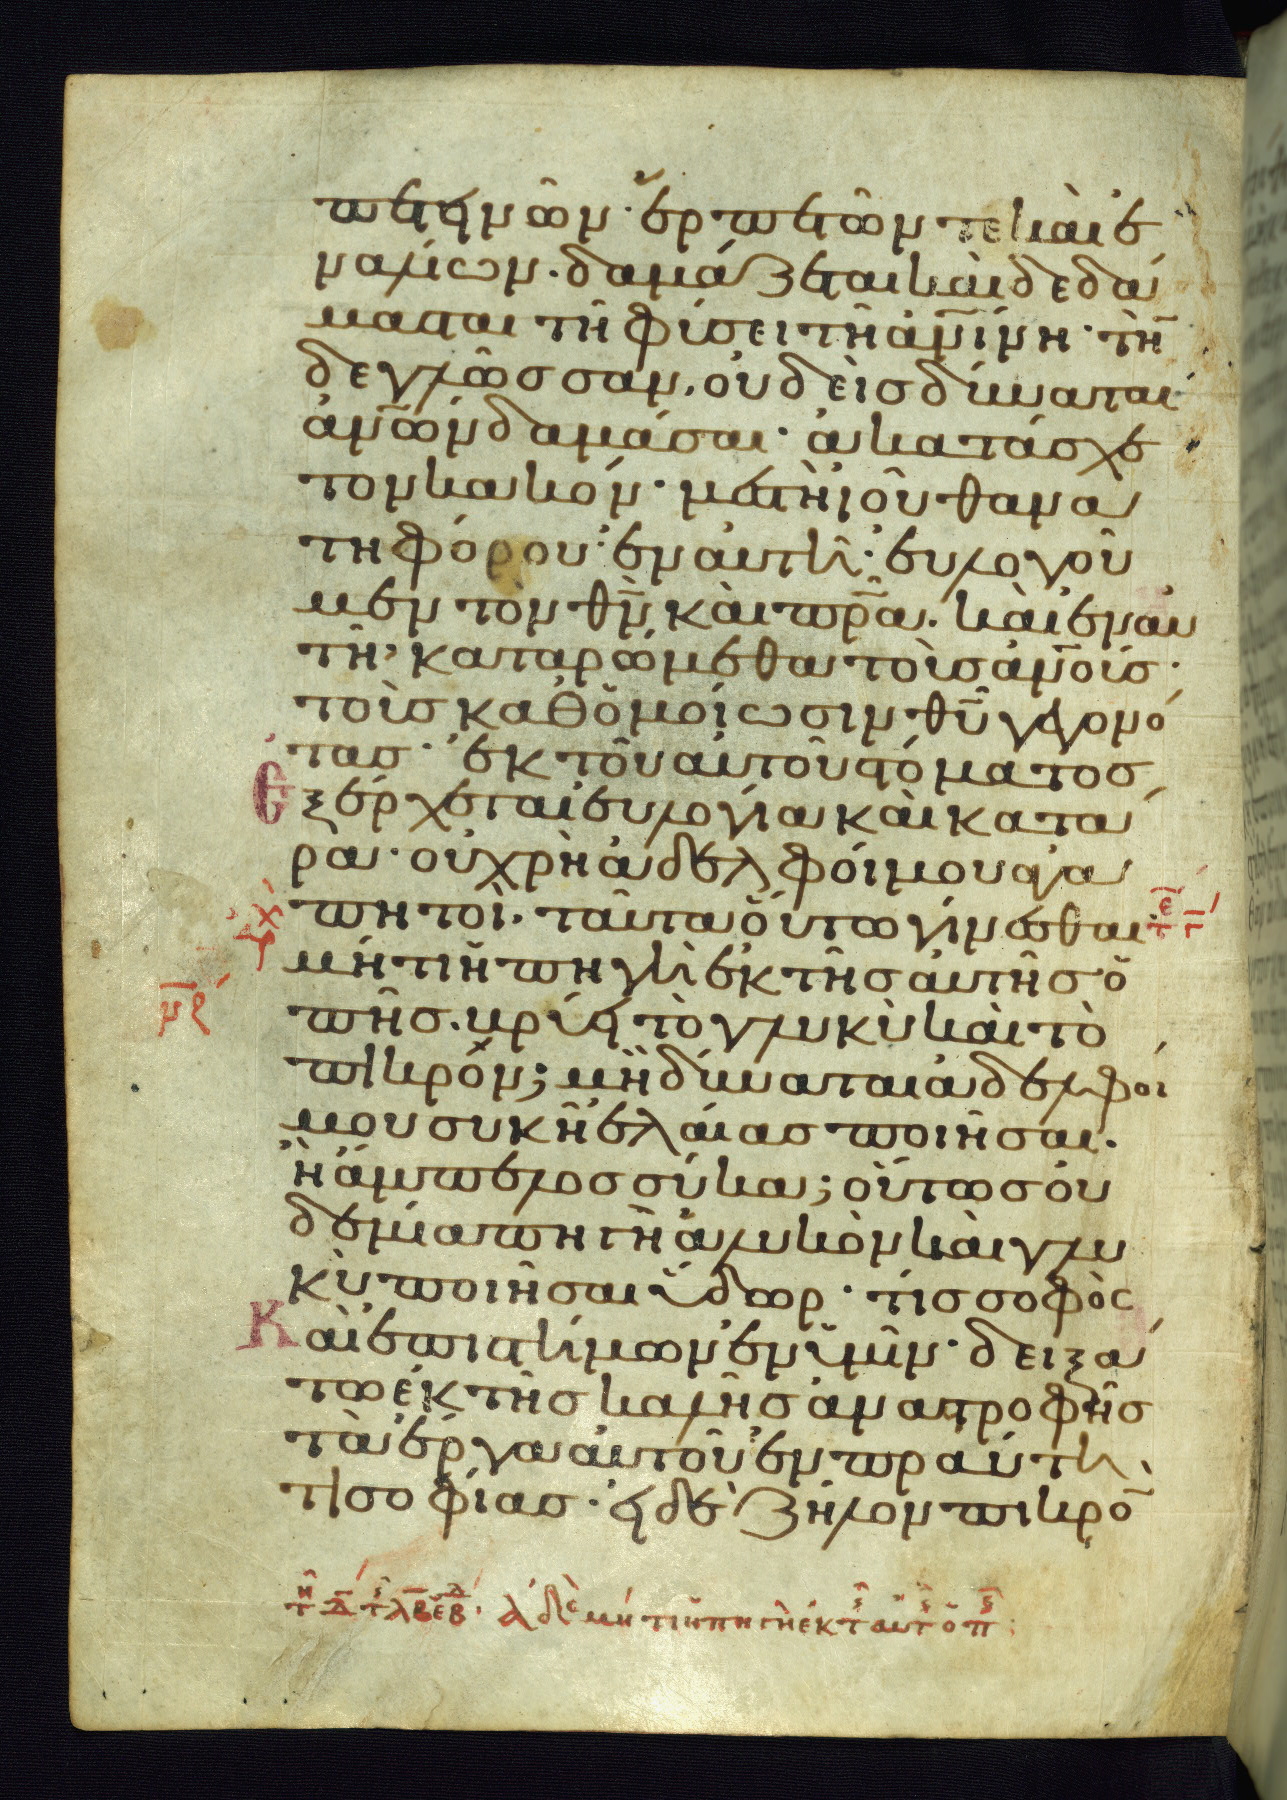 πετηνῶν· ἑρπετῶν τε καὶ ἐ
ναλίων. δαμάζεται καὶ δεδά
μασται τῆ φύσει τῆ ἀν̅ίνη· τὴν̅
δε γλῶσσαν, οὐδεὶς δύναται
ἀν̅ῶν δαμάσαι· ἀκατάσχε
τον κακόν· μεστὴ ἰοῦ θανα
τηφόρου· ἐν αὐτῆ· εὐλογοῦ
μεν τὸν θν̅ καὶ πρ̅α. καὶ ἐν αὐ
τῆ· καταρώμεθα τοὺς ἀν̅ους·
τοὺς καθ ὁμοίωσιν θυ̅ γεγονό
τας· ἐκ τοῦ αὐτοῦ στόματος
Ἐξέρχεται εὐλογία καὶ κατά
ρα· οὐ χρὴ ἀδελφοί μου ἀγα
πητοὶ. ταῦτα οὕτω γίνεσθαι·
μήτι ἡ πηγὴ ἐκ τῆς αὐτῆς ὀ
πῆς. βρύει τὸ γλυκὺ καὶ τὸ
πικρόν; μὴ δύναται ἀδελφοί
μου συκῆ ἐλαίας ποιῆσαι.
ἢ ἄμπελος σύκα; οὕτως οὐ
δεμία πηγὴ ἁλυκὸν καὶ γλυ
κὺ ποιῆσαι ὕδωρ· τίς σοφὸς
Καὶ ἐπιστήμων ἐν ὑμῖν· δειξά
τω ἐκ τῆς καλῆς ἀναστροφῆς
τὰ ἔργα αὐτοῦ ἐν πραύτη
τι σοφίας· εἰ δὲ ζῆλον πικρὸ̅
ἀδε μήτι ἡ πηγὴ ἐκ τ αὐτ ὀπ